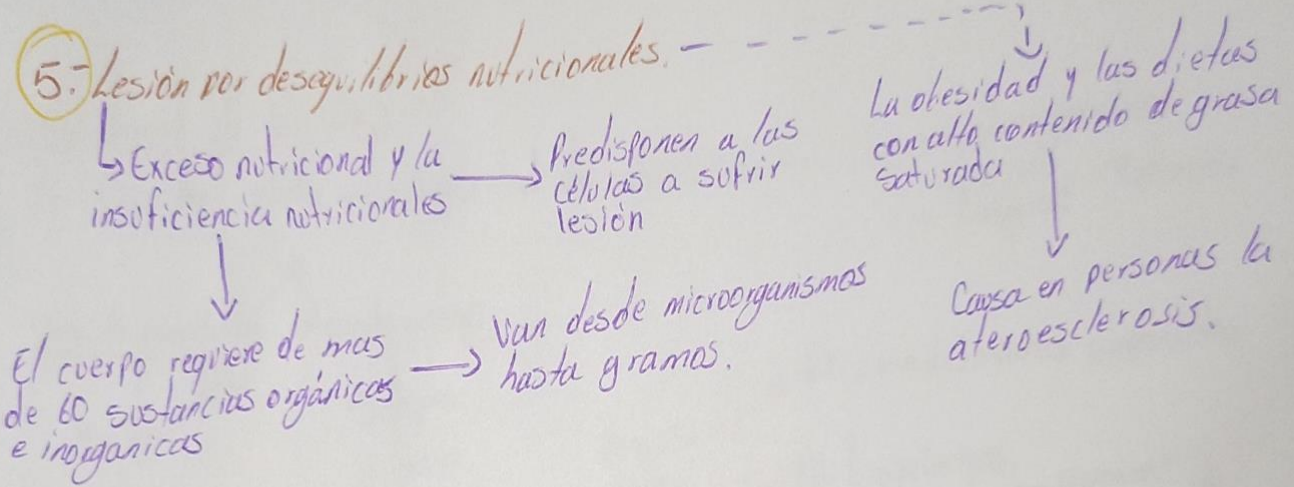 5.- Lesión por desequilibrios nutricionales.
Exceso nutricional y la
insuficiencia nutricionales
Predisponen a las
células a sufrir
lesión
La obesidad y las dietas
con alto contenido de grasa
saturada
El cuerpo requiere de mas
de 60 sustancias orgánicas
e inorganicas
Van desde microorganismos
hasta gramos.
Causa en personas la
ateroesclerosis.